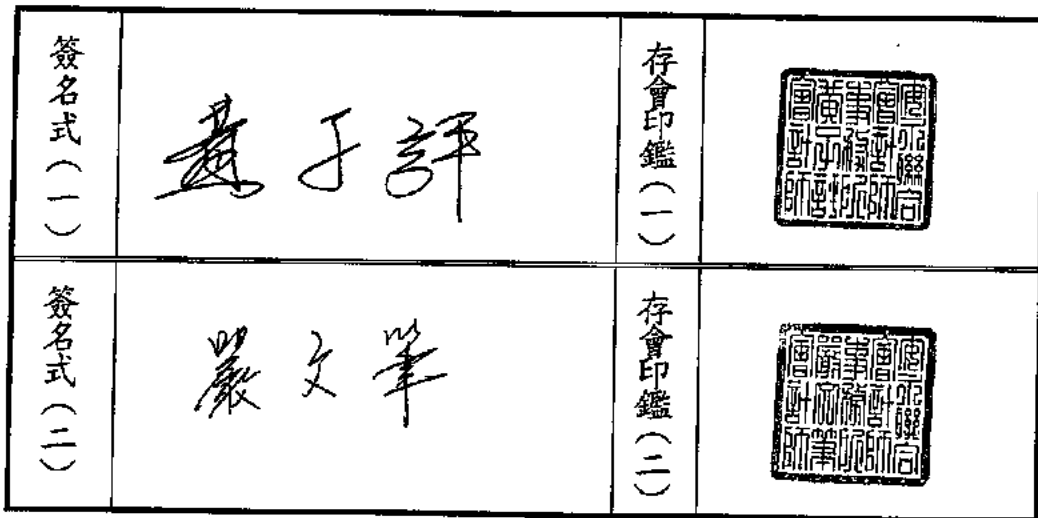 簽名式(一)
黃子評
存會印鑑(一)
安永聯合
會計師
事務所
黃子評
會計師
簽名式(二)
嚴文筆
存會印鑑(二)
安永聯合
會計師
事務所
嚴文筆
會計師